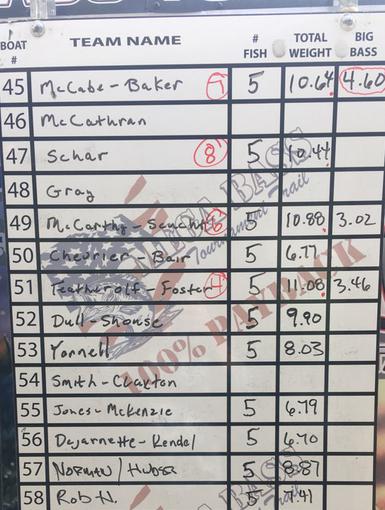 BOAT # TEAM NAME # FISH TOTAL WEIGHT BIG BASS
45 McCabe-Baker 7 5 10.64 4.60
46 McCathran
47 Schar 8 5 10.44
48 Gray
49 McCarthy- 6 5 10.88 3.02
50 Chevrier-Bair 5 6.77
51 Featherolf-Foster 4 5 11.08 3.46
52 Dull-Shouse 5 9.90
53 Yarnell 5 8.03
54 Smith-Clayton
55 Jones-McKenzie 5 6.79
56 Dejarnette-Kendel 5 6.70
57 NORMAN/HUDSER 5 8.87
58 Rob N. 5 7.41
BASS
Tournament Trail
100% PAYBACK